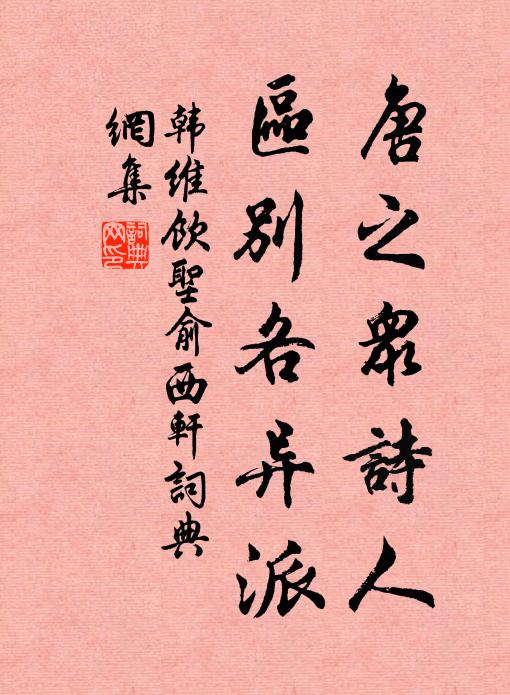 唐之衆詩人
區別各异派
韩维饮聖俞西軒詞典
網集
詞典
网印